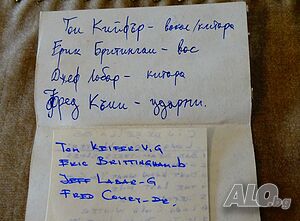 Том Кийфър - вокал/китара
Ерик Бритингам - бас
Джеф Лабар - китара
Фред Къми - ударни.
Tom Keifer - V,G
Eric Brittingham - b
Jeff Labar - G
Fred Coury - Dr.
ALO.bg